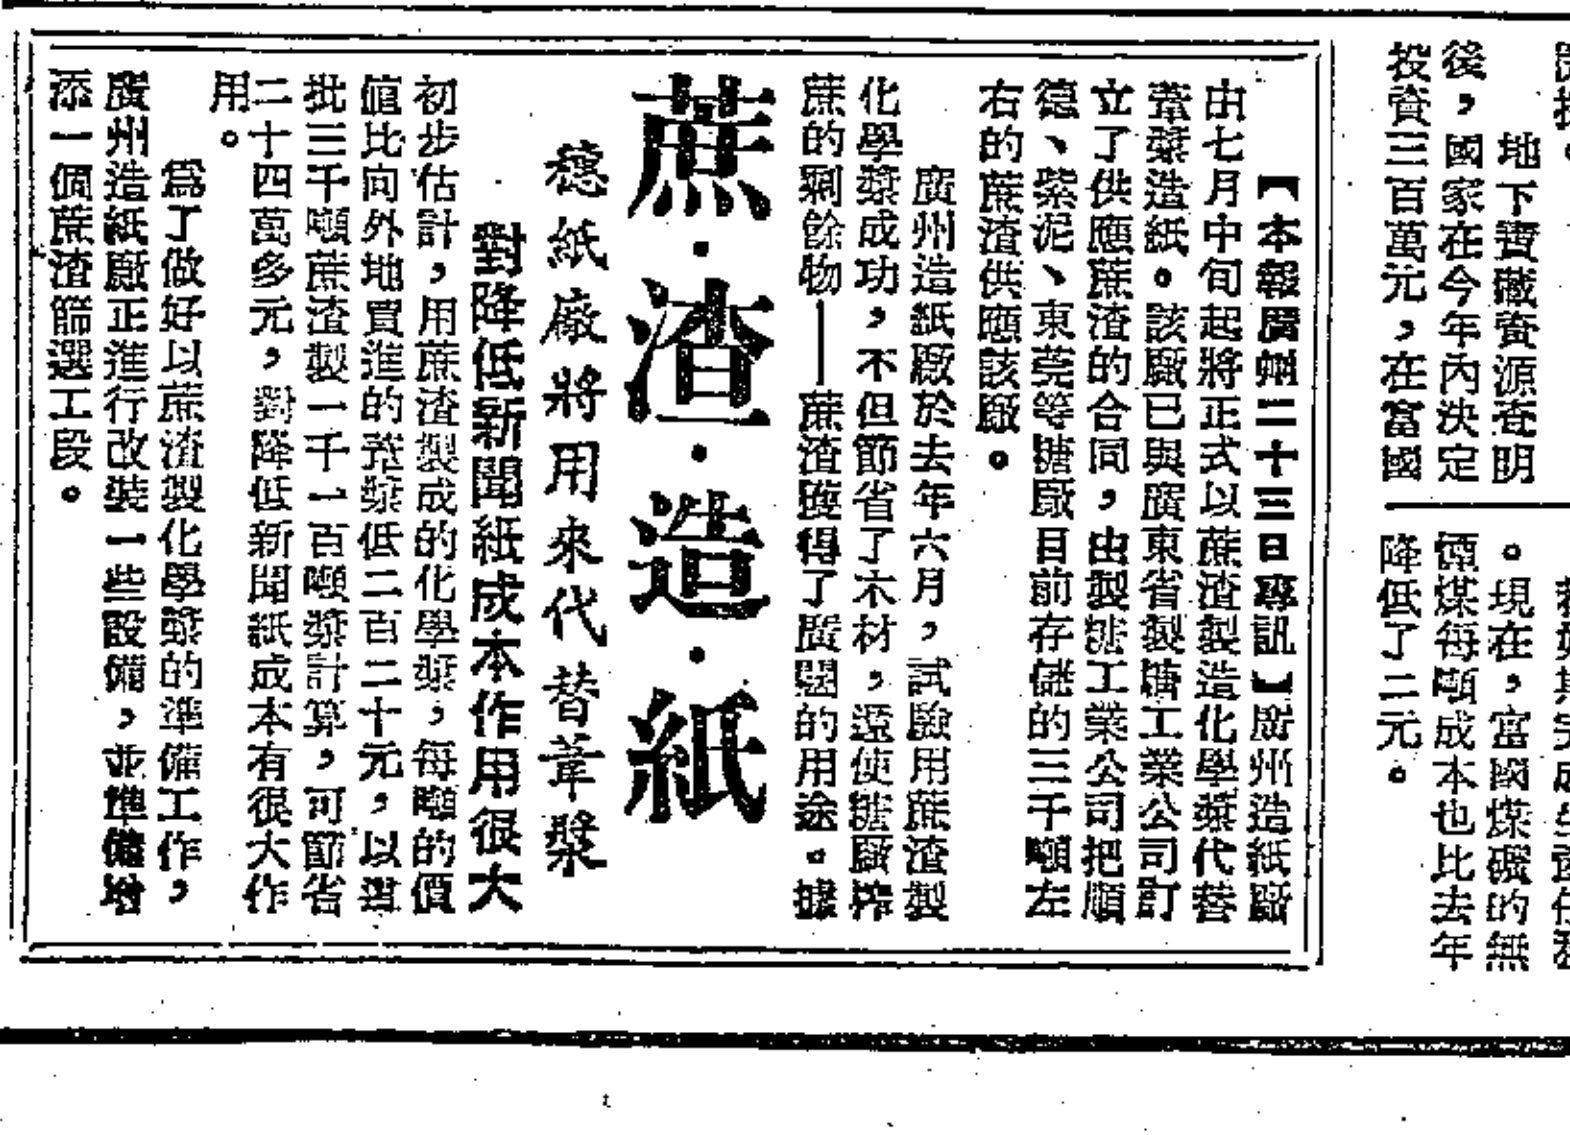 開採。
地下寶藏資源查明
後，國家在今年內決定
投資三百萬元，在富國
。現在，富國煤礦的無
煙煤每噸成本也比去年
降低了二元。
【本報廣州二十三日專訊】廣州造紙廠
由七月中旬起將正式以蔗渣製造化學漿代替
葦漿造紙。該廠已與廣東省製糖工業公司訂
立了供應蔗渣的合同，由製糖工業公司把順
德、紫泥、東莞等糖廠目前存儲的三千噸左
右的蔗渣供應該廠。
廣州造紙廠於去年六月，試驗用蔗渣製
化學漿成功，不但節省了木材，還使糖廠榨
蔗的剩餘物——蔗渣獲得了廣闊的用途。據
蔗·渣·造·紙
穗紙廠將用來代替葦漿
對降低新聞紙成本作用很大
初步估計，用蔗渣製成的化學漿，每噸的價
值比向外地買進的葦漿低二百二十元，以這
批三千噸蔗渣製一千一百噸漿計算，可節省
二十四萬多元，對降低新聞紙成本有很大作
用。
爲了做好以蔗渣製化學漿的準備工作，
廣州造紙廠正進行改裝一些設備，並準備增
添一個蔗渣篩選工段。